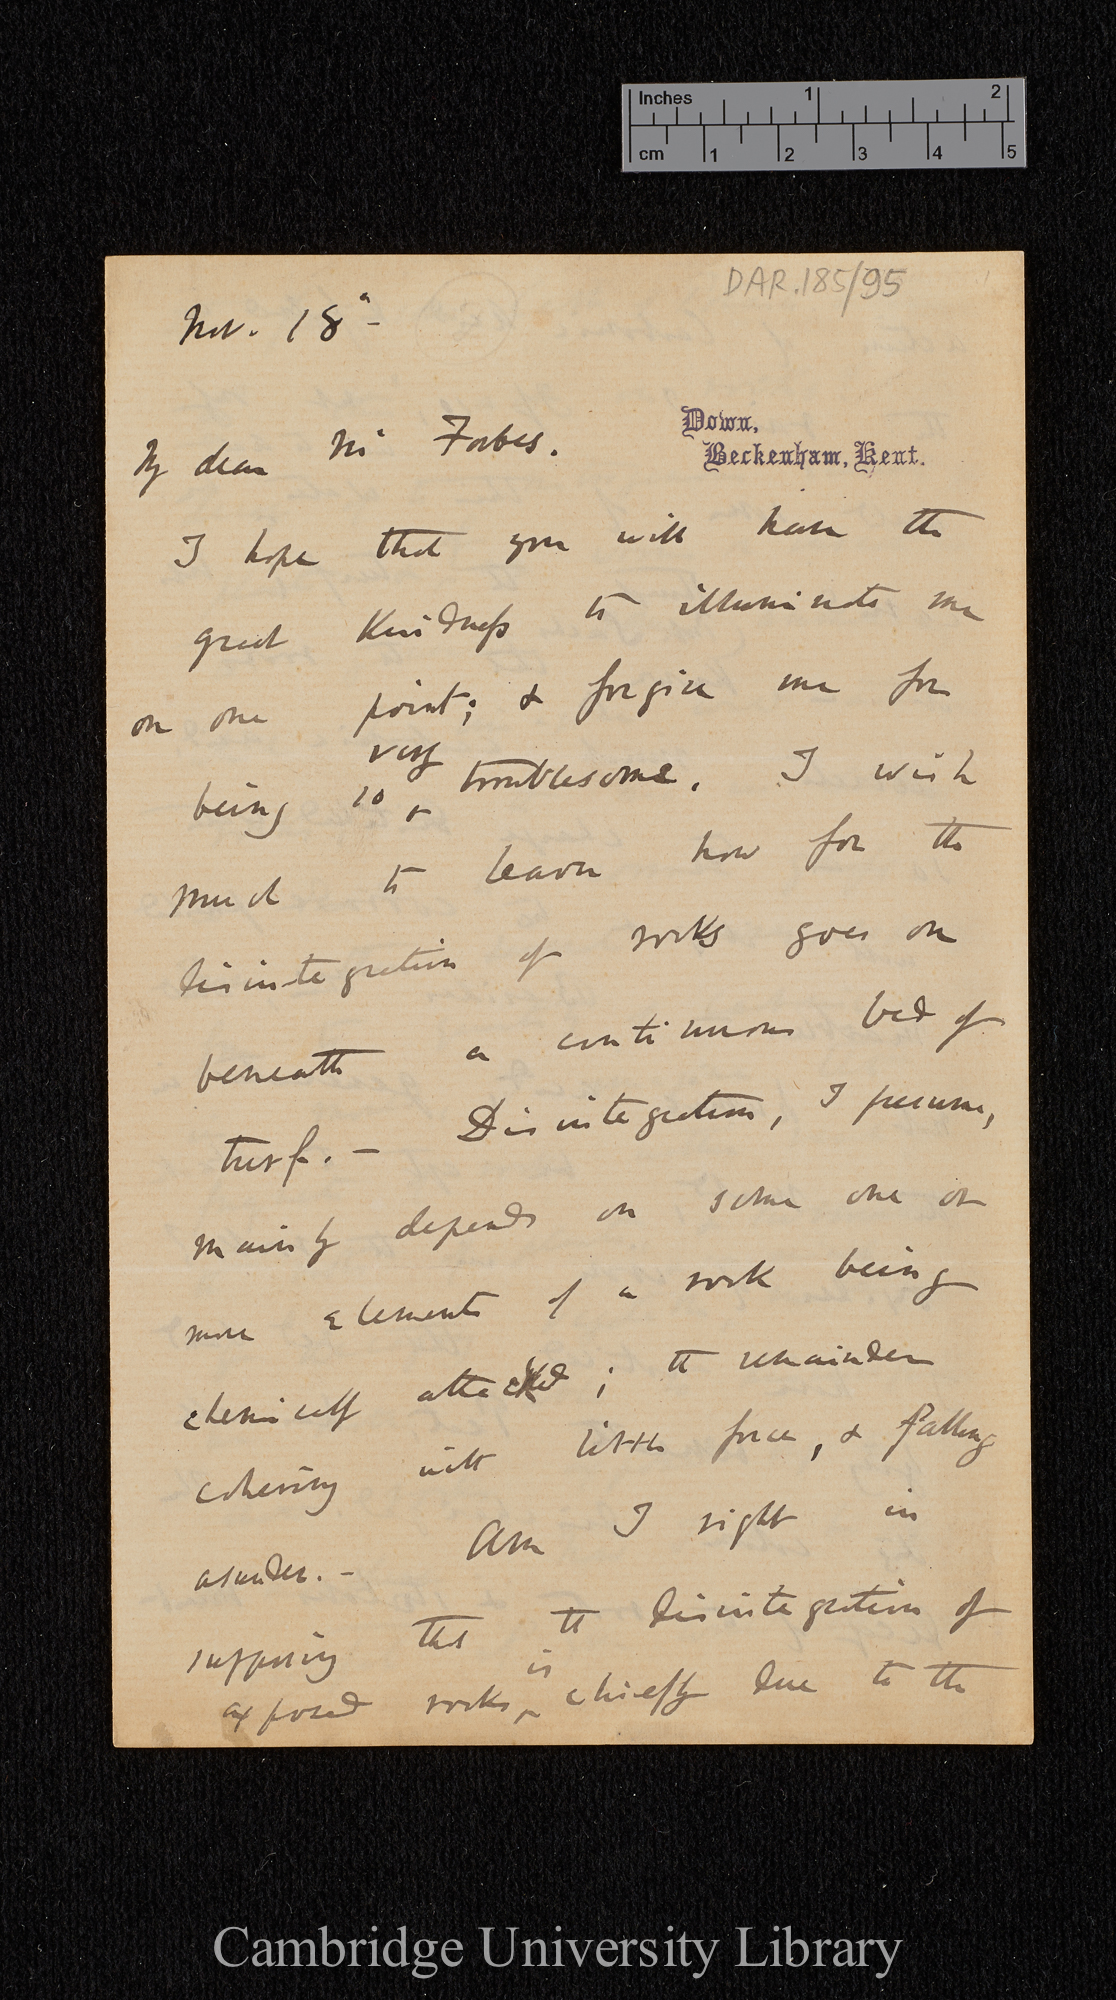 Inches 1 2
cm 1 2 3 4 5
DAR.185/95
Nov. 18th—
Down,
Beckenham, Kent.
My dear Mr Forbes.
I hope that you will have the
great kindness to illuminate me
on one point; & forgive me for
very
being so ^ troublesome. I wish
much to learn how far the
disintegration of rocks goes on
beneath a continuous bed of
turf.— Disintegration, I presume,
mainly depends on some one or
more elements of a rock being
chemically attacked; the remainder
cohering with little force, & falling
asunder.— Am I right in
supposing that the disintegration of
is
exposed rocks, ^ chiefly due to the
Cambridge University Library